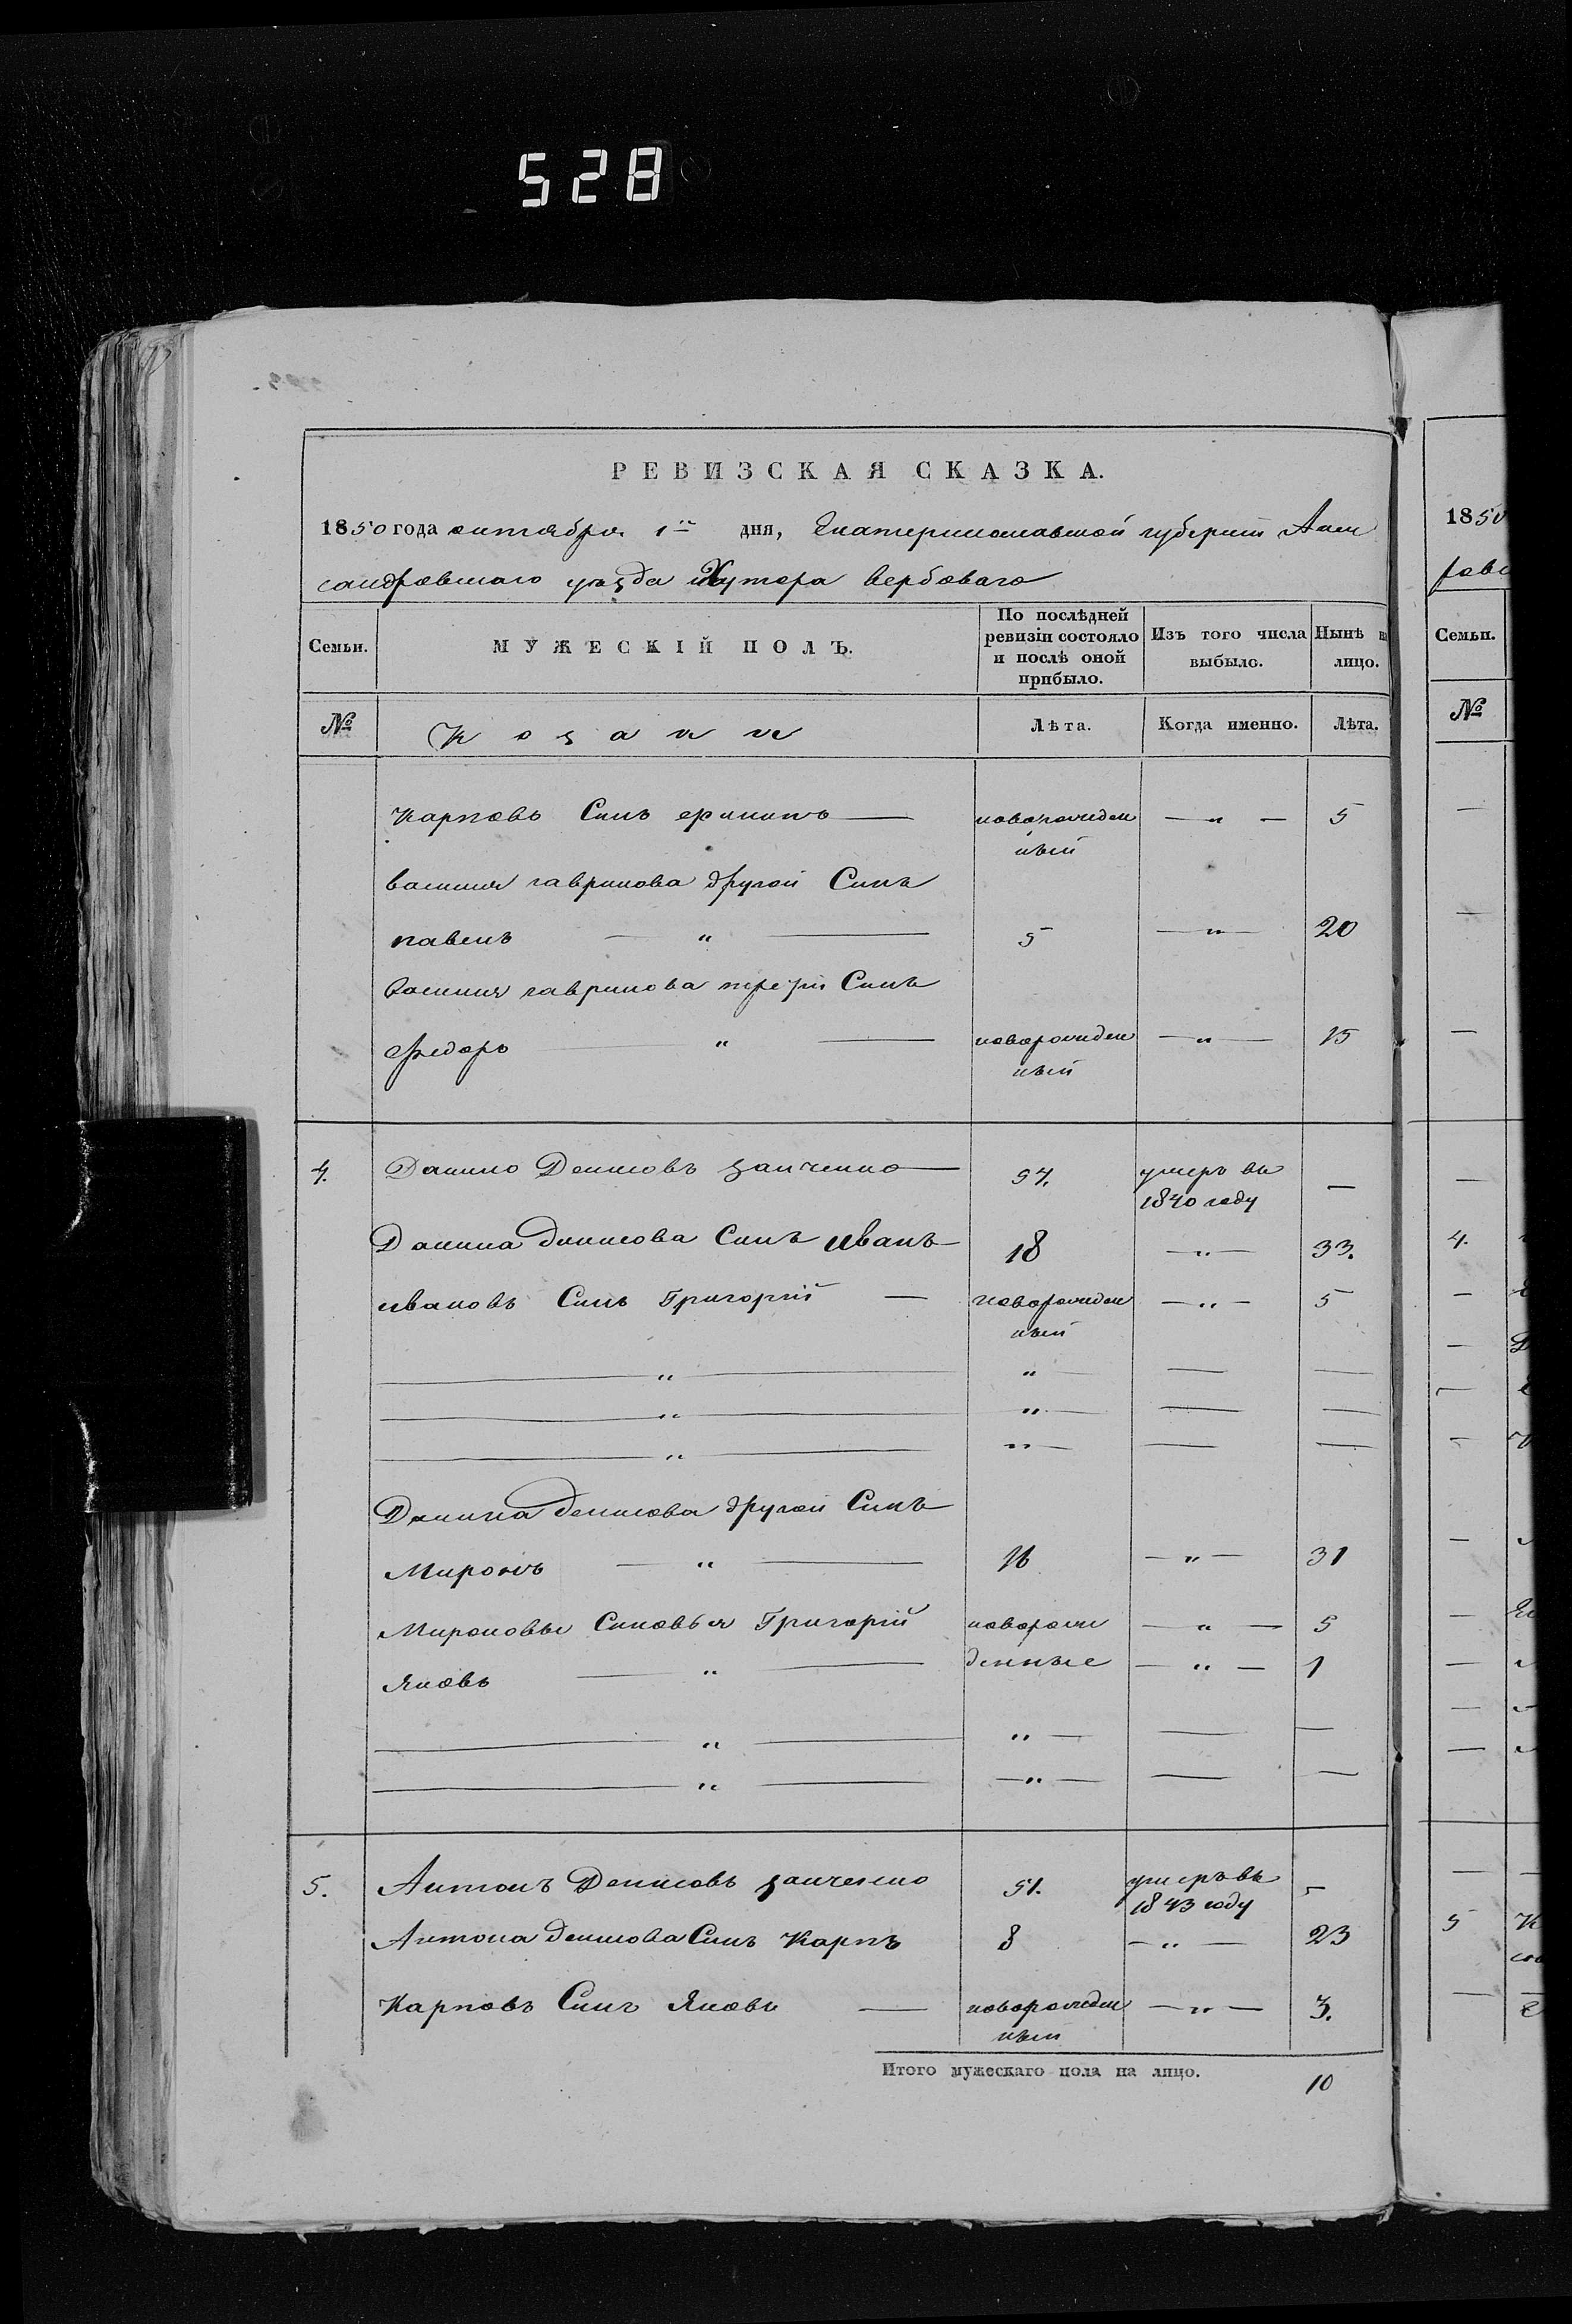 528
РЕВИЗСКАЯ СКАЗКА.
1850 года октября 1го дня, Екатеринославской губернии Алек
сандровскаго уезда Хутора вербоваго
Семьи.
МУЖЕСКІЙ ПОЛЪ.
По послѣдней ревизіи состояло и послѣ оной прибыло.
Изъ того числа выбыло.
Нынѣ н лицо.
№
Козаки
Лѣта.
Когда именно.
Лѣта.
Карповъ Синъ филипъ — новорожден ный — „ — 5
василия гаврилова другой Синъ
павелъ — „ — 5 — „ — 20
василия гаврилова третій Синъ
федоръ — „ — новорожден ный — „ — 15
4. Данило Денисовъ заиченко — 57. умеръ въ 1840 году —
Данила денисова Синъ иванъ — 18 — „ — 33.
ивановъ Синъ Григорій — новорожден ный — „ — 5
— „ — „ — — —
— „ — „ — — —
— „ — „ — — —
Данила денисова другой Синъ
Миронъ — „ — 16 — „ — 31
Мироновы Синовья Григорій новорож — „ — 5
Яковъ — „ — денные — „ — 1
— „ — „ — — —
— „ — — „ — — —
5. Антонъ Денисовъ заиченко 51. умеръ въ 1843 году —
Антона денисова Синъ Карпъ 8 — „ — 23
Карповъ Синъ Яковъ — новорожден ный — „ — 3.
Итого мужескаго пола на лицо.
10
1850
Семьи.
№
4.
5